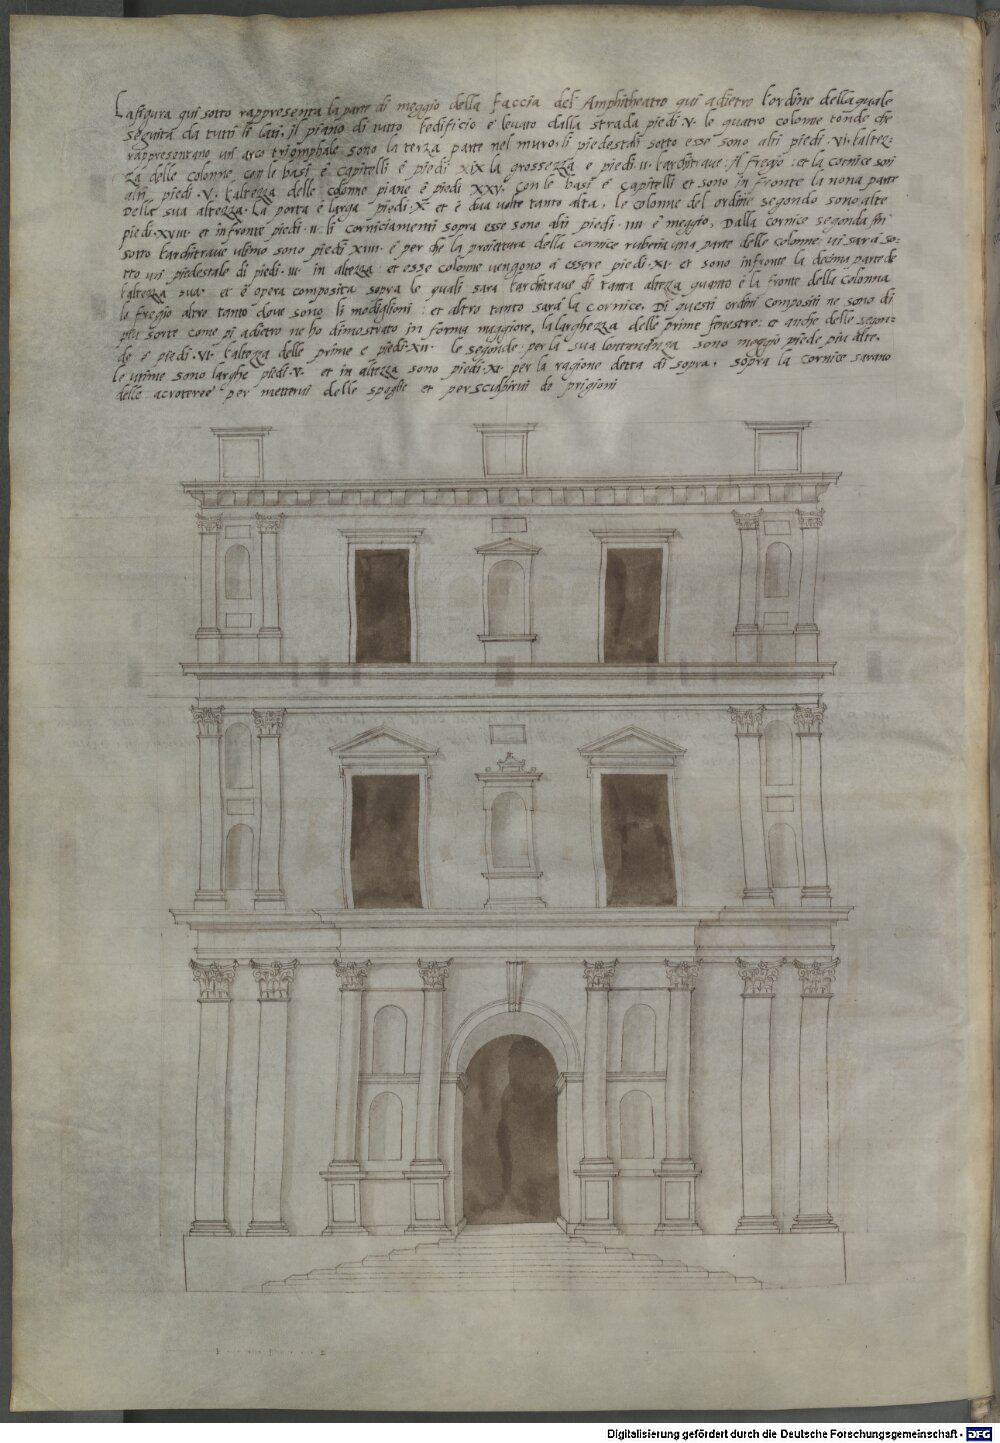 La figura qui sotto rappresenta la parte di meggio della faccia del Amphitheatro qui adietro l'ordine della quale
seguita da tutti li lati. il piano di tutto l'edificio e levato dalla strada piedi .V. le quatro colonne tonde che
rappresentano un arco triomphale sono la terza parte nel muro. li piedestali sotto esse sono alti piedi .VI. l'altez=
za delle colonne con le basi e capitelli e piedi XIX la grossezza e piedi .II. l'architrave: il fregio: et la cornice son
alti piedi .V. l'altezza delle colonne piane e piedi XXV. con le basi e capitelli et sono in fronte la nona parte
della sua altezza. La porta e larga piedi .X. et e dua volte tanto alta. le colonne del ordine segondo sono alte
piedi .XVIII. et in fronte piedi .II. li corniciamenti sopra esse sono alti piedi .IIII. e meggio. Dalla cornice segonda fin
sotto l'architrave ultimo sono piedi XIIII. e per che la proiettura della cornice ruberia una parte delle colonne. vi sara so=
tto un piedestale di piedi .III. in altezza: et esse colonne vengono a essere piedi .XI. et sono in fronte la decima parte de
l'altezza sua. et e opera composita sopra le quali sara l'architrave di tanta altezza quanto e la fronte della colonna
lo fregio altro tanto dove sono li modiglioni: et altro tanto sara la cornice. Di questi ordini compositi ne sono di
piu sorte come pi adietro ne ho dimostrato in forma maggiore. la larghezza delle prime fenestre: et anche delle segon=
de e piedi .VI. l'altezza delle prime e piedi .XII. le segonde per la sua lontananza sono meggio piede piu alte.
le ultime sono larghe piedi .V. et in altezza sono piedi .XI. per la ragione detta di sopra. sopra la cornice sarano
delle acroteree per mettervi delle spoglie et per sculpirvi de prigioni
Digitalisierung gefördert durch die Deutsche Forschungsgemeinschaft - DFG